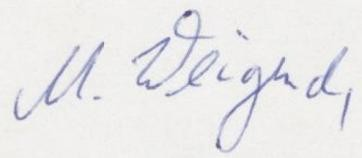 M. Weigend,